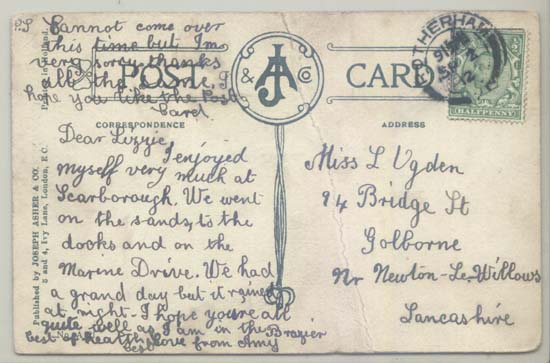 PS Cannot come over
this time but Im
very sorry, thanks
all the same. I
hope you like the Post
Card
POST
& JA Co
CARD
ROTHERHAM
HALFPENNY
Printed in Holland.
Published by JOSEPH ASHER & CO.
3 and 4, Ivy Lane, London, E.C.
CORRESPONDENCE
Dear Lizzie,
I enjoyed
myself very much at
Scarborough. We went
on the sands, to the
docks and on the
Marine Drive. We had
a grand day but it rained
at night. I hope you're all
quite well as I am in the
best of health. Love from Amy
Brazier
ADDRESS
Miss L Ogden
94 Bridge St
Golborne
Nr Newton-Le-Willows
Lancashire